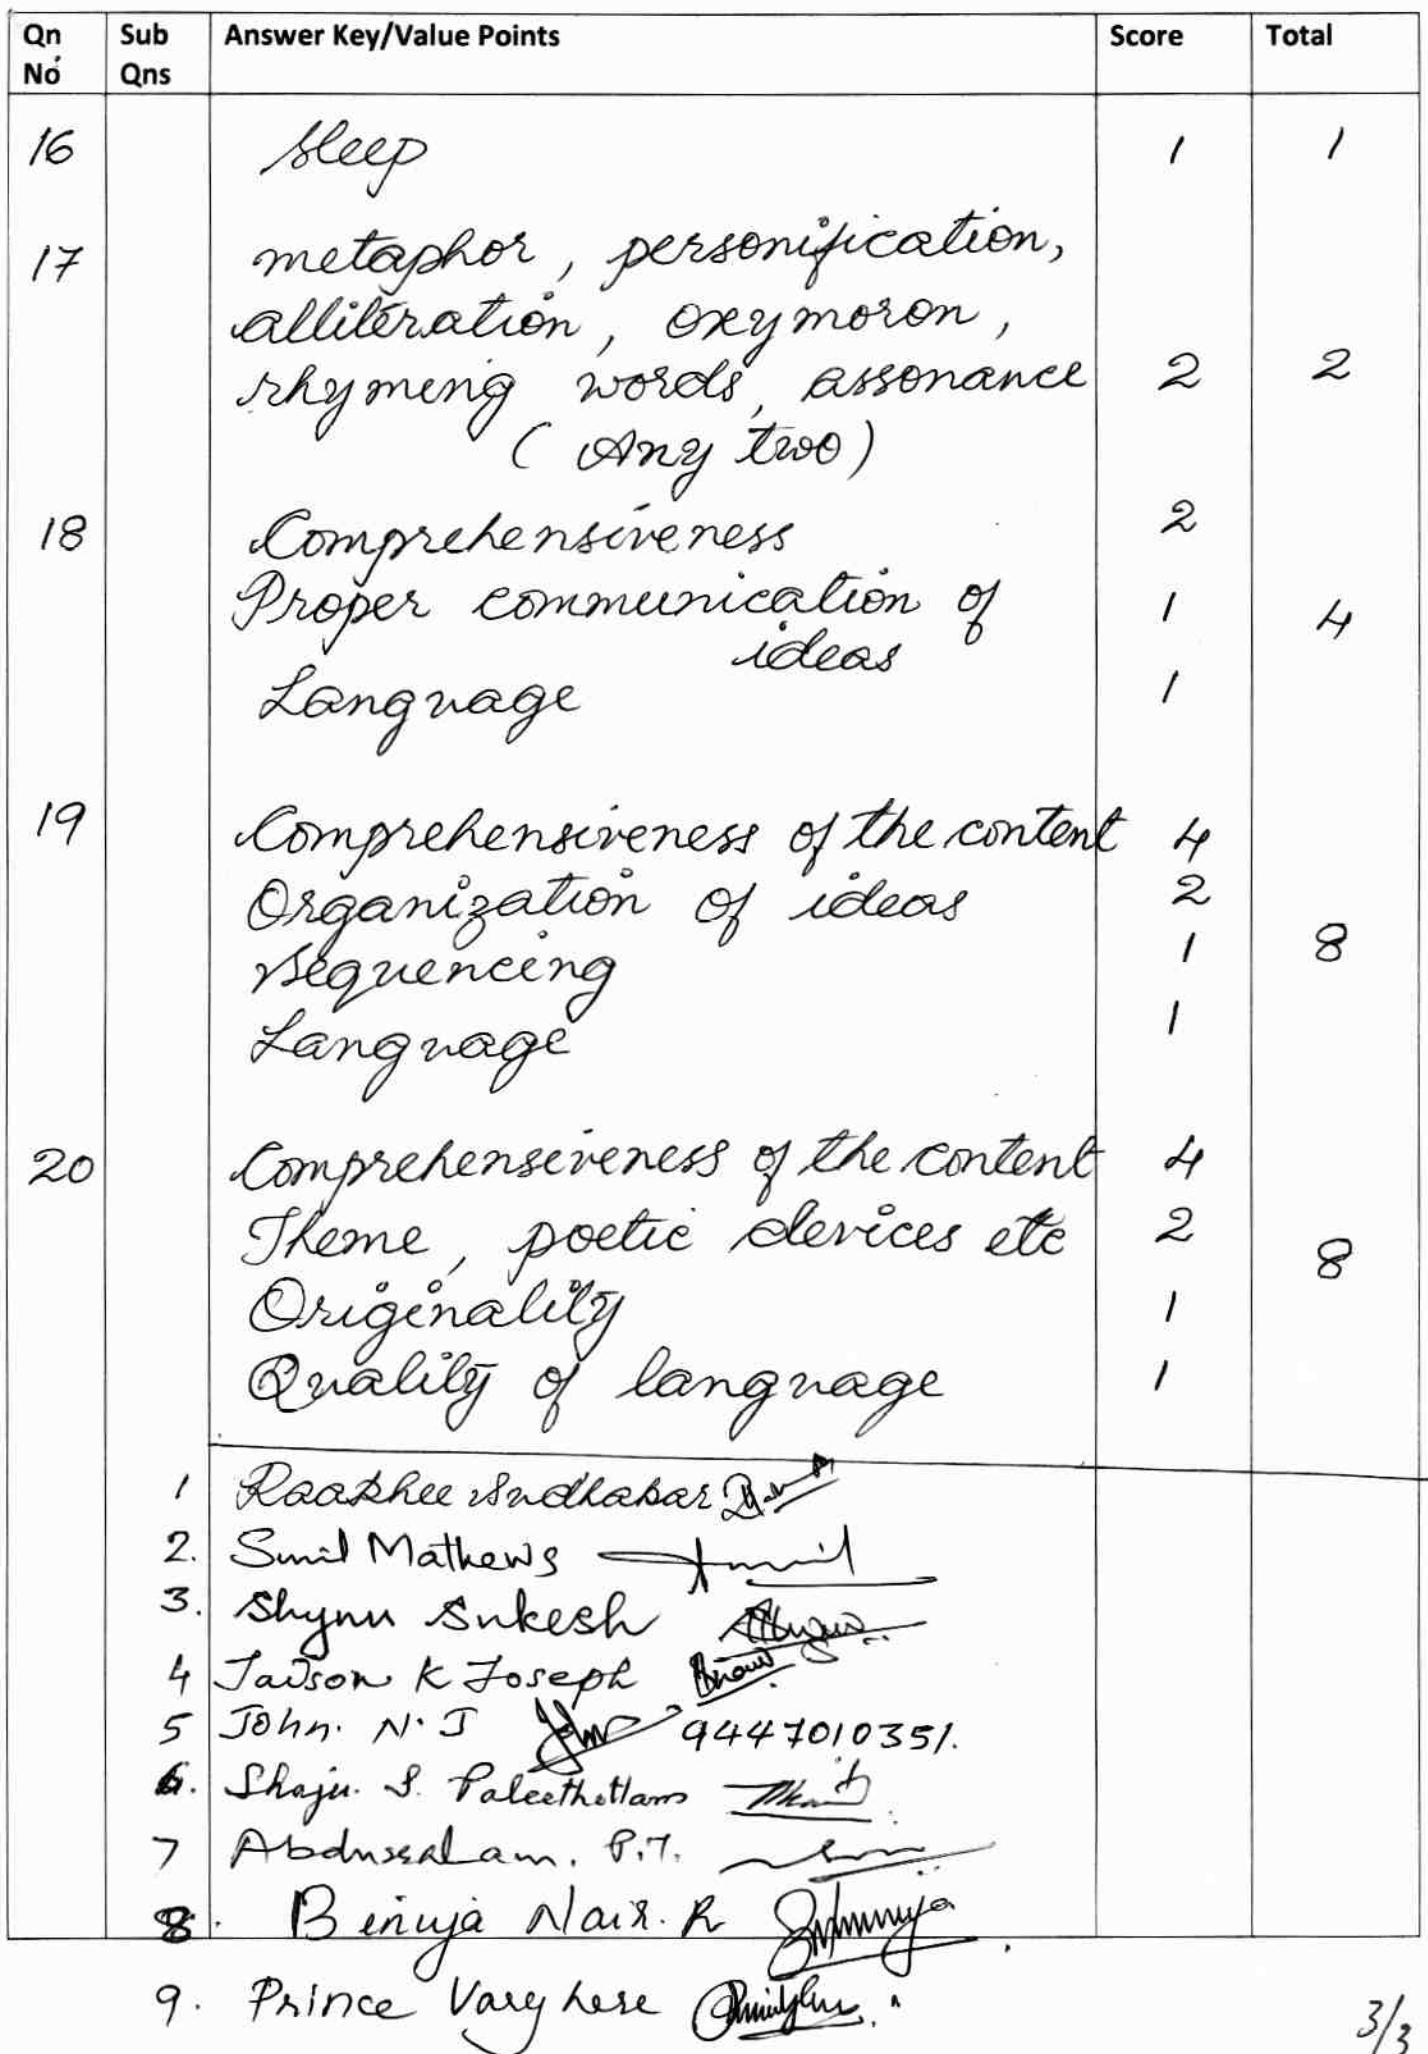 Qn No Sub Qns Answer Key/Value Points Score Total
16 Sleep 1 1
17 metaphor, personification,
alliteration, oxymoron,
rhyming words, assonance 2 2
(Any two)
18 Comprehensiveness 2
Proper communication of 1 4
ideas
Language 1
19 Comprehensiveness of the content 4
Organization of ideas 2
Sequencing 1 8
Language 1
20 Comprehensiveness of the content 4
Theme, poetic devices etc 2
8
Originality 1
Quality of language 1
1 Raakhee Sudhakar
2. Sunil Mathews
3. Shynu Sukesh
4 Jaison K Joseph
5 John. N. J 9447010351.
6. Shaju. S.
7 Abdussalam. P.T.
8. Binuja Nair. R Binuja
9. Prince Varghese
3/3